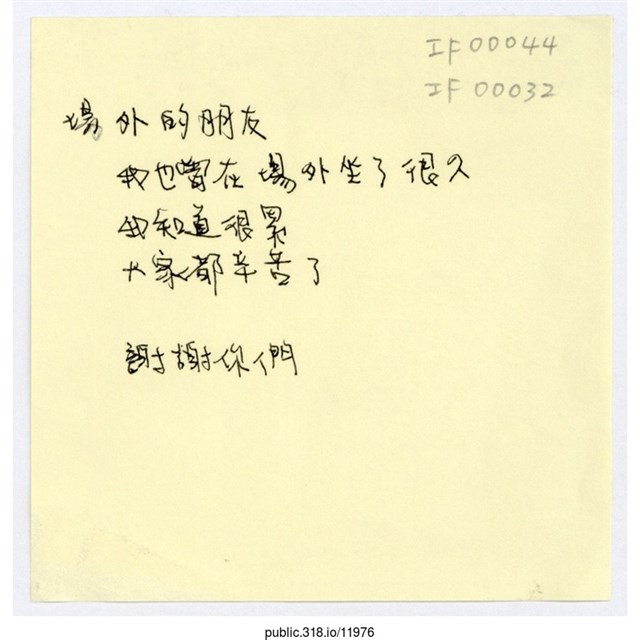 IF00044
IF00032
場外的朋友
我也嘗在場外坐了很久
我知道很累
大家都辛苦了
謝謝你們
public.318.io/11976